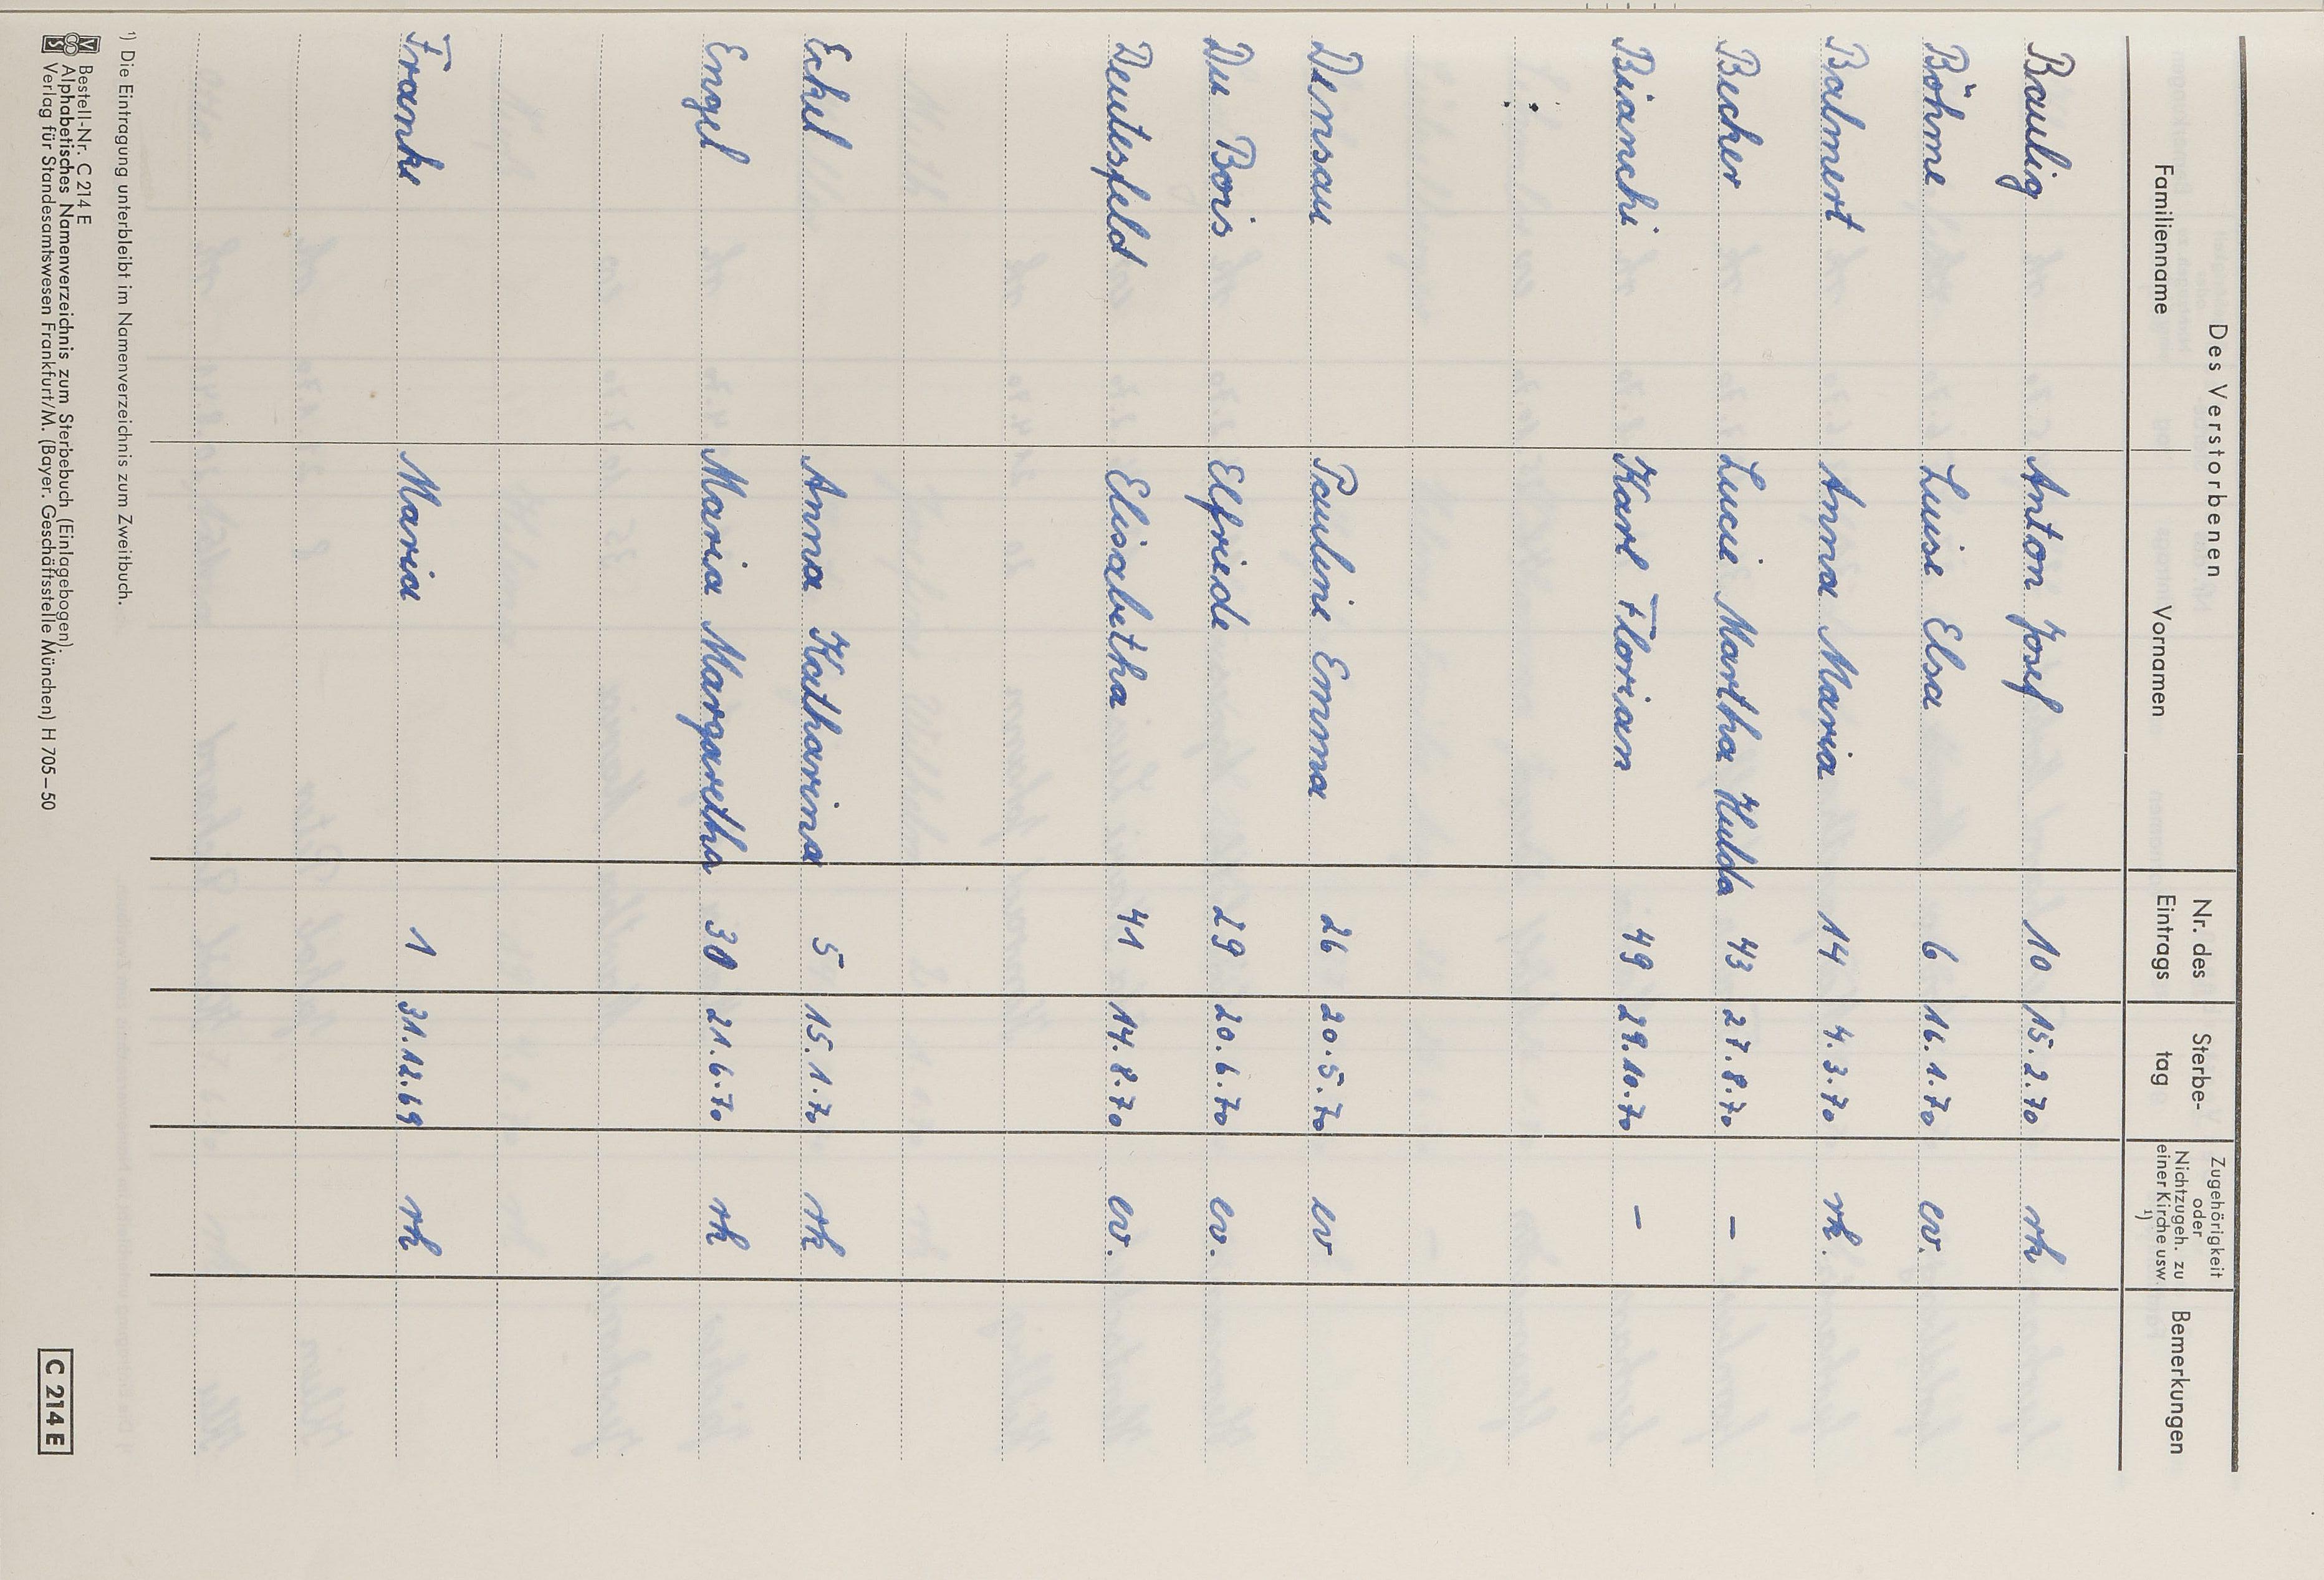 Des Verstorbenen
Familienname Vornamen Nr. des Eintrags Sterbe-tag Zugehörigkeit oder Nichtzugeh. zu einer Kirche usw. ¹) Bemerkungen
Baulig Anton Josef 10 15.2.70 rk
Böhme Luise Elsa 6 16.1.70 ev.
Balmert Anna Maria 14 4.3.70 rk.
Becker Lucie Martha Hulda 43 27.8.70 –
Bianchi Karl Florian 49 29.10.70 –
Densau Pauline Emma 26 20.5.70 ev
Du Bois Elfriede 29 20.6.70 ev.
Deutesfeld Elisabetha 41 14.8.70 ev.
Eckel Anna Katharina 5 15.1.70 rk
Engel Maria Margaretha 30 21.6.70 rk
Franke Maria 1 31.12.69 rk
¹) Die Eintragung unterbleibt im Namenverzeichnis zum Zweitbuch.
Bestell-Nr. C 214 E
Alphabetisches Namenverzeichnis zum Sterbebuch (Einlagebogen).
Verlag für Standesamtswesen Frankfurt/M. (Bayer. Geschäftsstelle München) H 705–50
C 214 E